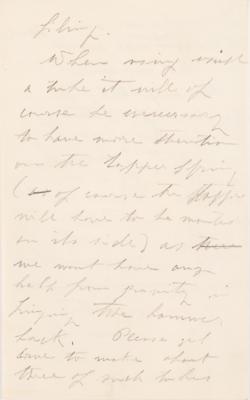 filing.
When using such
a tube it will of
course be necessary
to have more tension
on the tapper spring
(of course the tapper
will have to be mounted
on its side) as
we wont have any
help from gravity in
bringing the hammer
back. Please get
Dave to make about
three of such tubes